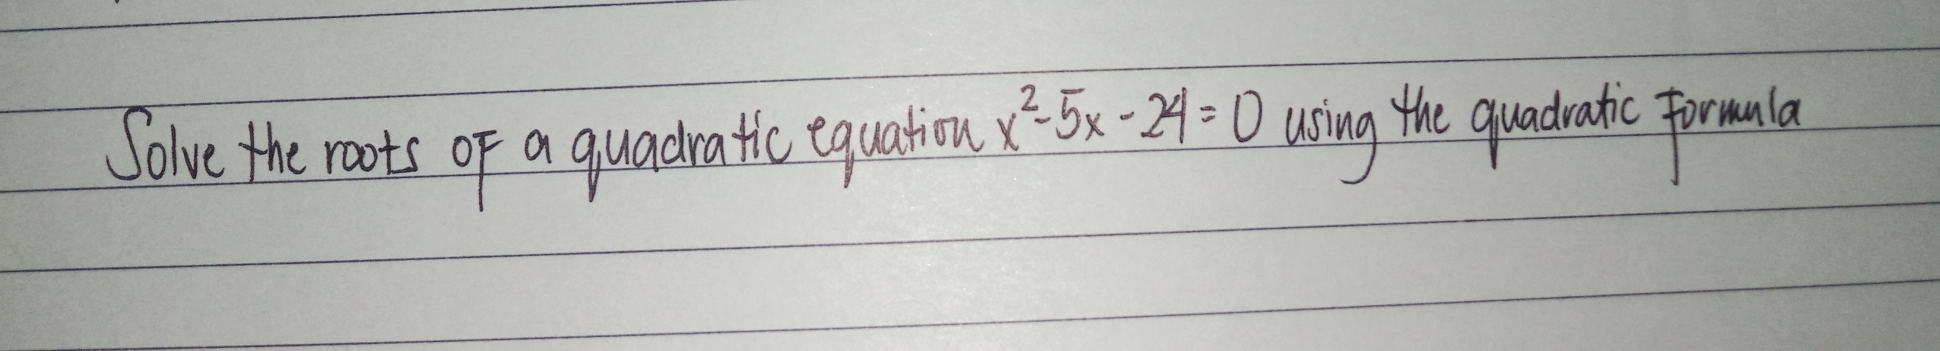 Solve the roots of a quadratic equation x²-5x-24=0 using the quadratic formula